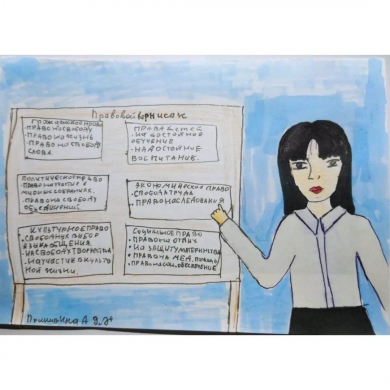 Правовой вернисаж
Гражданское право
• право на свободу
• право на жизнь
• право на свободу
слова.
Права детей
• на достойное
обучение
• на достойное
воспитание.
Политическое право
• право на участие в
митингах и собраниях.
• право на свободу
объединений
Экономическое право
• свобода труда
• право наследования
Культурное право
• свободных выбор
языка общения.
• на свободу творчества
• на участие в культур
ной жизни.
Социальное право
• право на отдых
• на защиту материнства
• право на мед. помощь
• право на соц. обеспечение